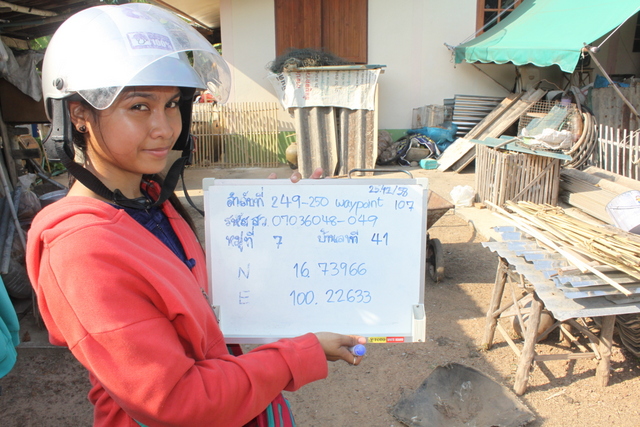 25/12/58
ลำดับที่ 249-250 waypoint 107
รหัส สว 07036048-049
หมู่ที่ 7 บ้านเลขที่ 41
N 16.73966
E 100.22633